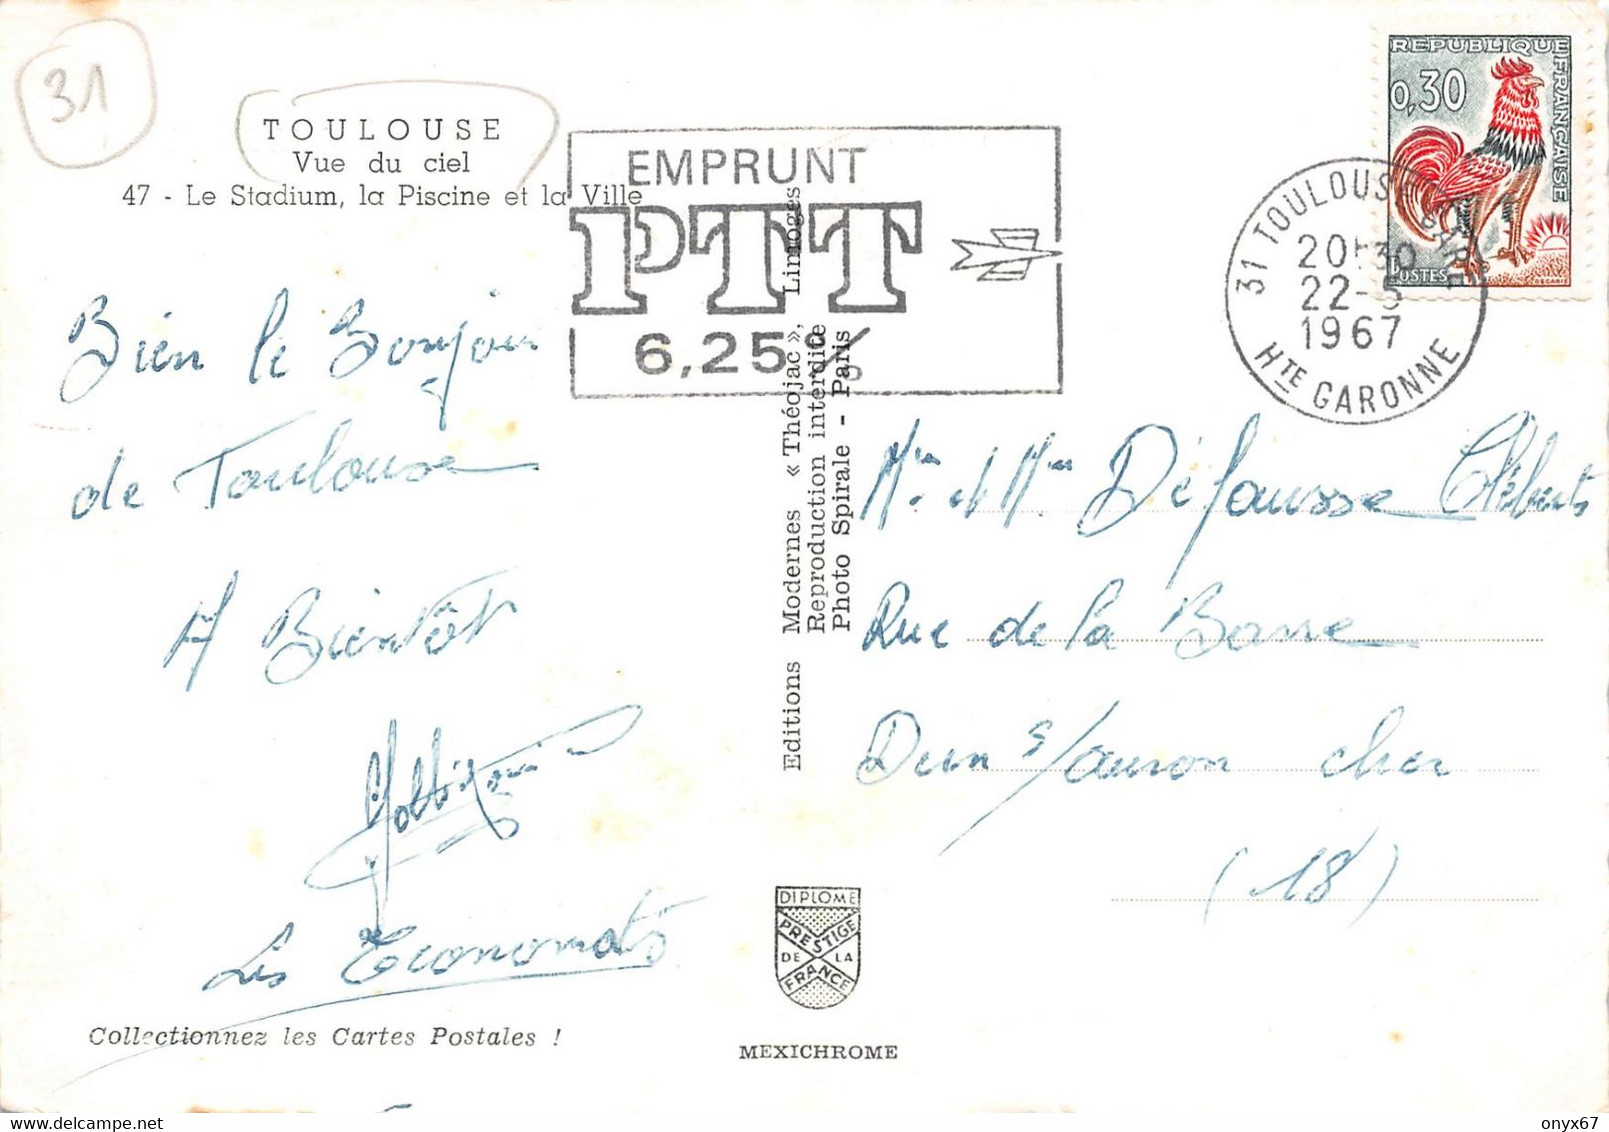 31
TOULOUSE
Vue du ciel
47 - Le Stadium, la Piscine et la Ville
EMPRUNT
PTT
6,25%
REPUBLIQUE FRANÇAISE
0,30
POSTES
DECARIS
31 TOULOUSE GARE
20H30
22-5
1967
HTE GARONNE
Bien le Bonjour
de Toulouse
A Bientôt
Les Economats
Collectionnez les Cartes Postales !
Editions Modernes « Théojac », Limoges
Reproduction interdite
Photo Spirale - Paris
DIPLOME
PRESTIGE
DE LA
FRANCE
MEXICHROME
Mr et Mme Défausse
Rue de la Barre
Dun s/auron cher
(18)
onyx67